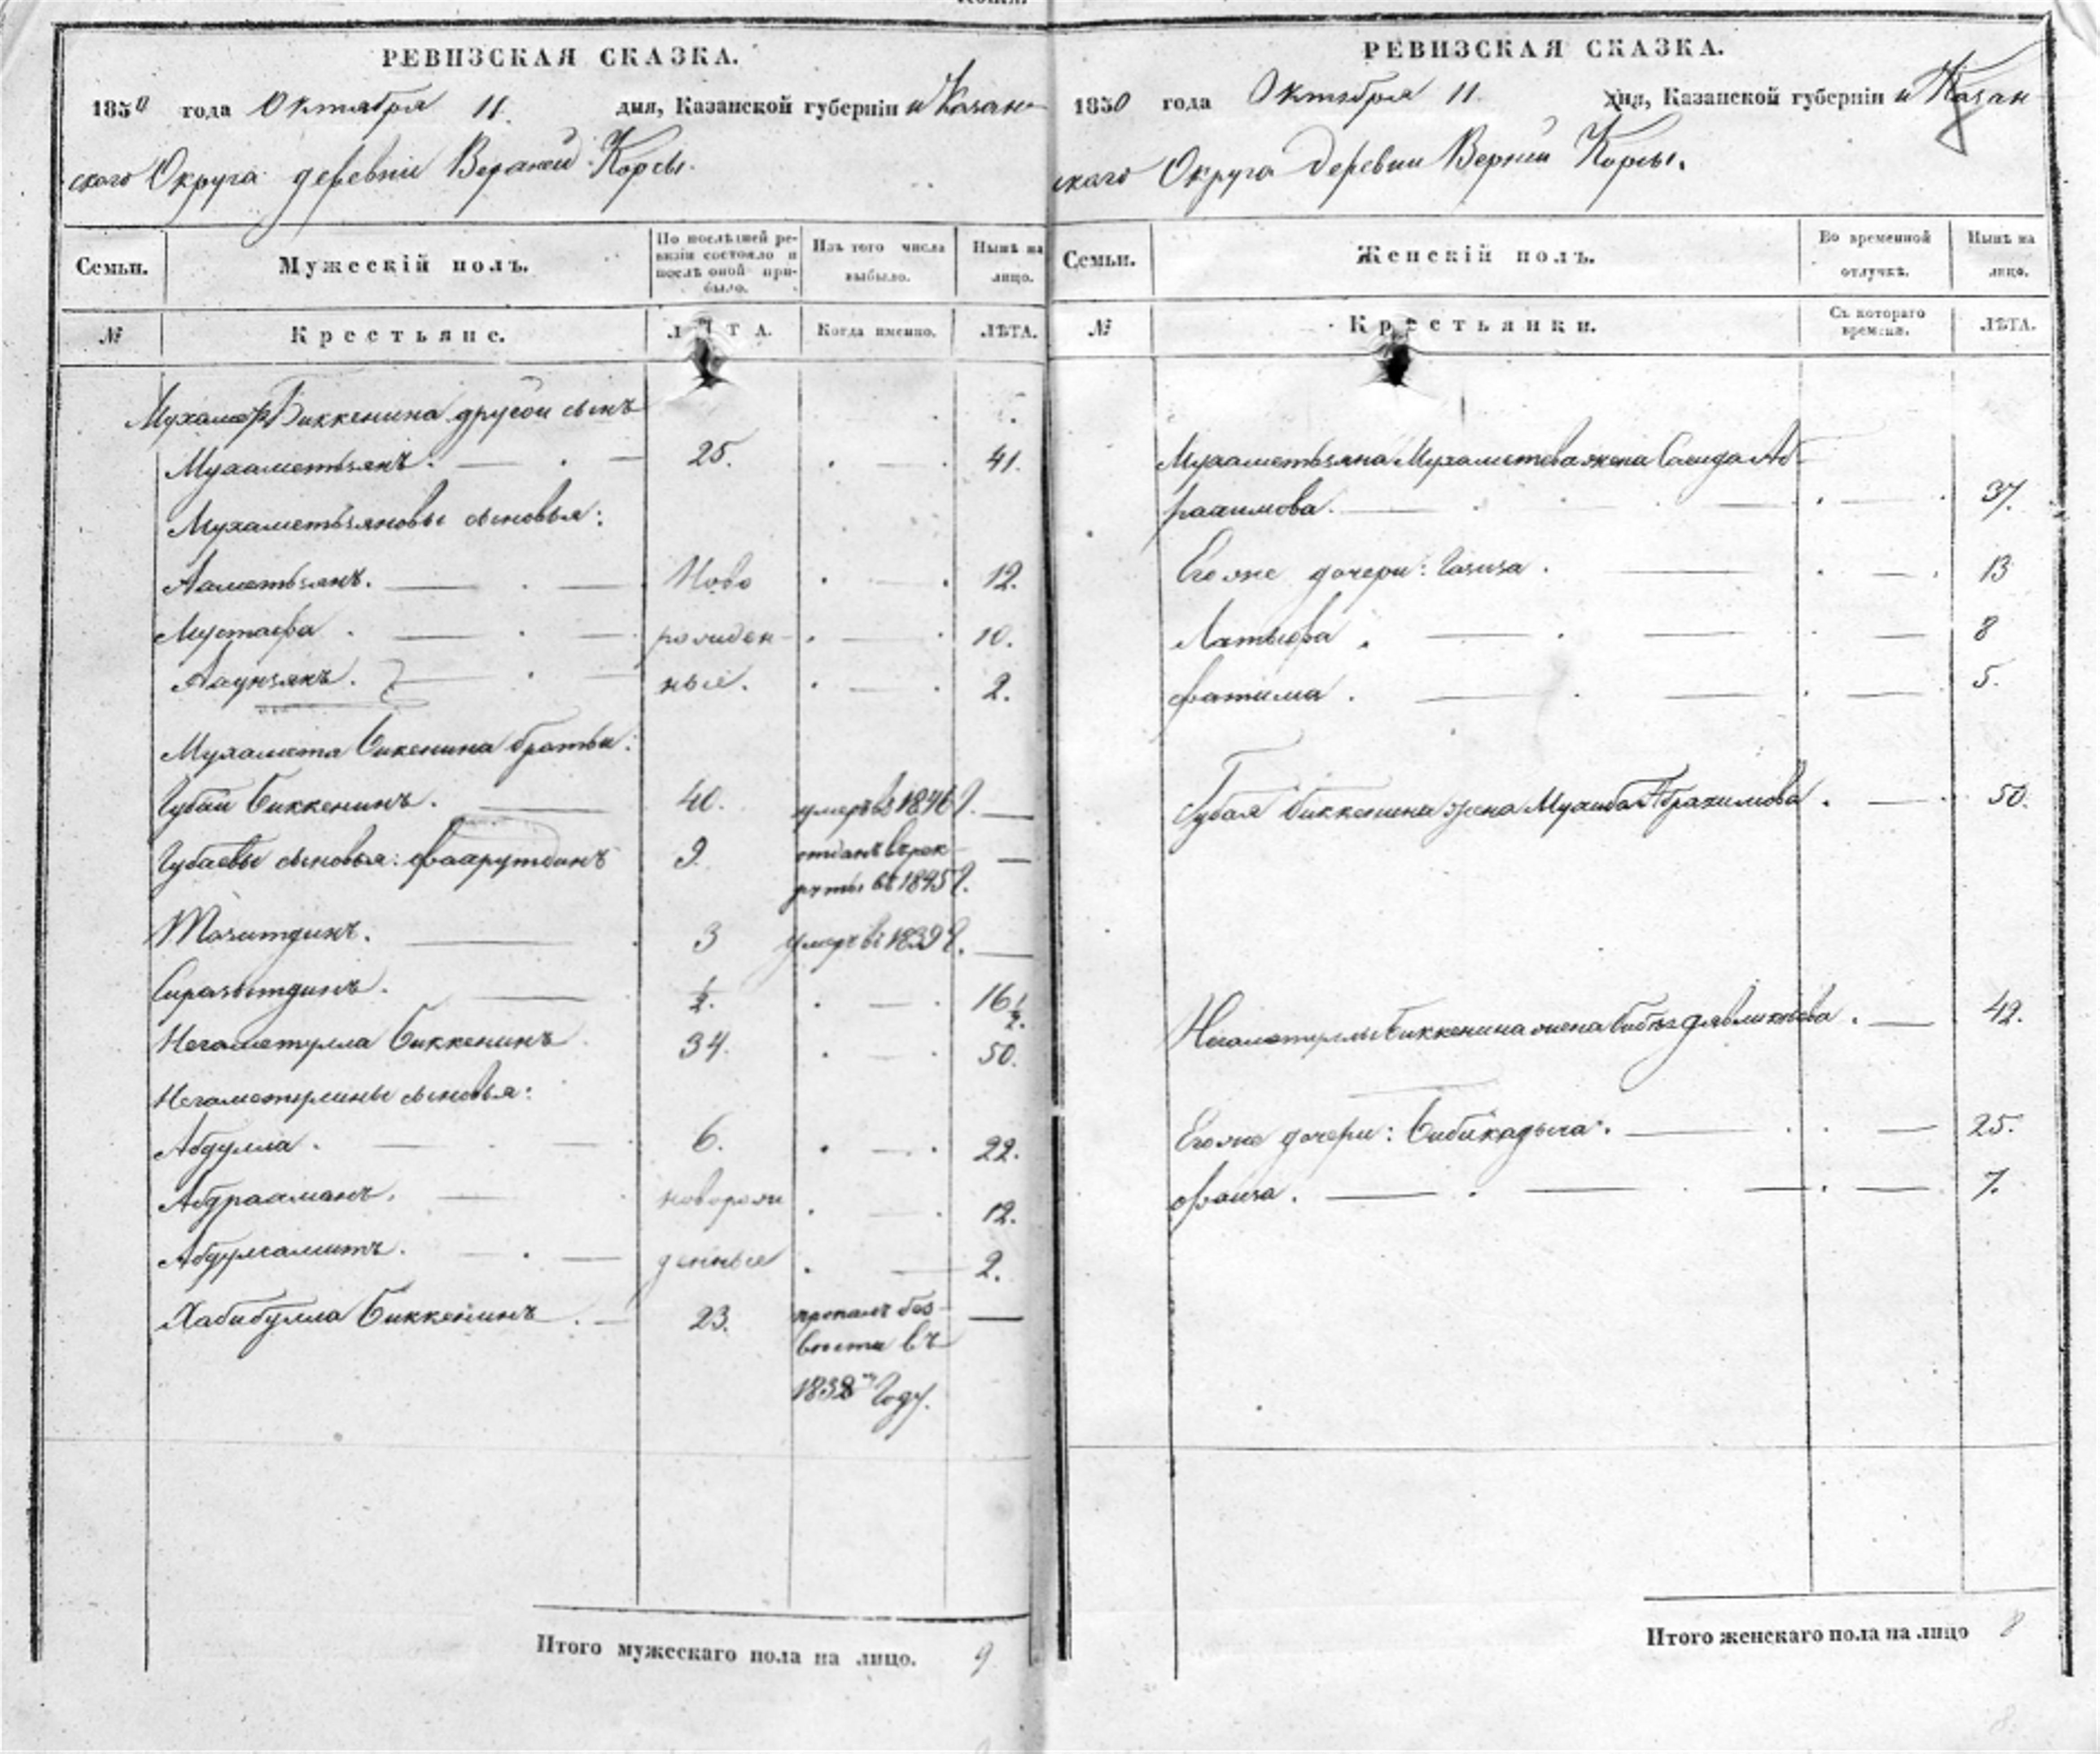 РЕВИЗСКАЯ СКАЗКА.
1850 года Октября 11. дня, Казанской губерніи и Казан-
скаго Округа деревни Верхней Корсы.
Семьи.
Мужескій полъ.
По послѣдней ре-
визіи состояло и
послѣ оной при-
было.
Изъ того числа
выбыло.
Нынѣ на
лицо.
№
Крестьяне.
ЛѢТА.
Когда именно.
ЛѢТА.
Биккенина другой сынъ
Мухаметьзянъ. 25. 41.
Мухаметьзяновы сыновья:
Ахметьзянъ. Ново 12.
Мустафа рожден- 10.
ные. 2.
Мухамета Бикенина братья:
Губай Биккенинъ. 40. умеръ въ 1846 г.
Губаевы сыновья: Фахрутдинъ 9. отданъ в рек-
руты въ 1845 г.
3 умеръ въ 1839 г.
Сиразытдинъ. ½. 16½.
Негаметулла Биккенинъ 34. 50.
Негаметулины сыновья:
Абдулла. 6. 22.
Абдрахманъ. новорож 12.
денные 2.
Хабибулла Биккенинъ. 23. пропалъ без
вести въ
году.
Итого мужескаго пола на лицо. 9
РЕВИЗСКАЯ СКАЗКА.
1850 года Октября 11. дня, Казанской губерніи и Казан
скаго Округа деревни Верхней Корсы.
Семьи.
Женскій полъ.
Во временной
отлучкѣ.
Нынѣ на
лицо.
№
Крестьянки.
Съ котораго
времени.
ЛѢТА.
Мухаметьзяна Мухаметева жена Саида Аб-
рахимова. 37.
Его же дочери: Газиза. 13
Латыфа. 8
Фатима. 5.
Губая Биккенина жена Абрахимова. 50.
Негаметуллы Биккенина жена 42.
Его же дочери: Бибикадыча. 25.
Фаиза. 7.
Итого женскаго пола на лицо 8